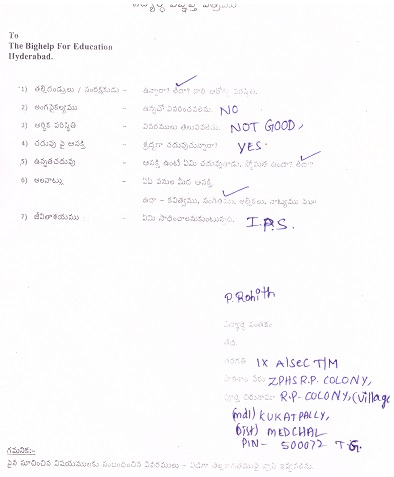 విద్యార్థి విజ్ఞప్తి పత్రము
To
The Bighelp For Education
Hyderabad.
1) తల్లిదండ్రులు / సంరక్షకుడు - ఉన్నారా? లేరా? వారి ఆరోగ్య పరిస్థితి.
2) అంగవైకల్యము - ఉన్నచో వివరించవలెను. NO
3) ఆర్థిక పరిస్థితి - వివరములు తెలుపవలెను. NOT GOOD,
4) చదువు పై ఆసక్తి - శ్రద్ధగా చదువుచున్నారా? YES.
5) ఉన్నతచదువు - ఆసక్తి ఉంటే ఏమి చదువుతారు, స్తోమత ఉందా? లేదా?
6) అలవాట్లు - ఏఏ పనుల మీద ఆసక్తి
ఉదా - కవిత్వము, సంగీతము, ఆటలు, నాట్యము
7) జీవితాశయము - ఏమి సాధించాలనుకుంటున్నారు. I.P.S.
P. Rohith
విద్యార్థి సంతకం
తేది.
తరగతి IX A/sec T/M
పాఠశాల పేరు ZPHS R.P. COLONY,
పూర్తి చిరునామా R.P- COLONY, (village
(mdl) KUKATPALLY,
(Dist) MEDCHAL
PIN- 500072 T.G.
గమనిక:-
పైన సూచించిన విషయములకు సంబంధించిన వివరములు - విడిగా తెల్లకాగితముపై వ్రాసి ఇవ్వవలెను.